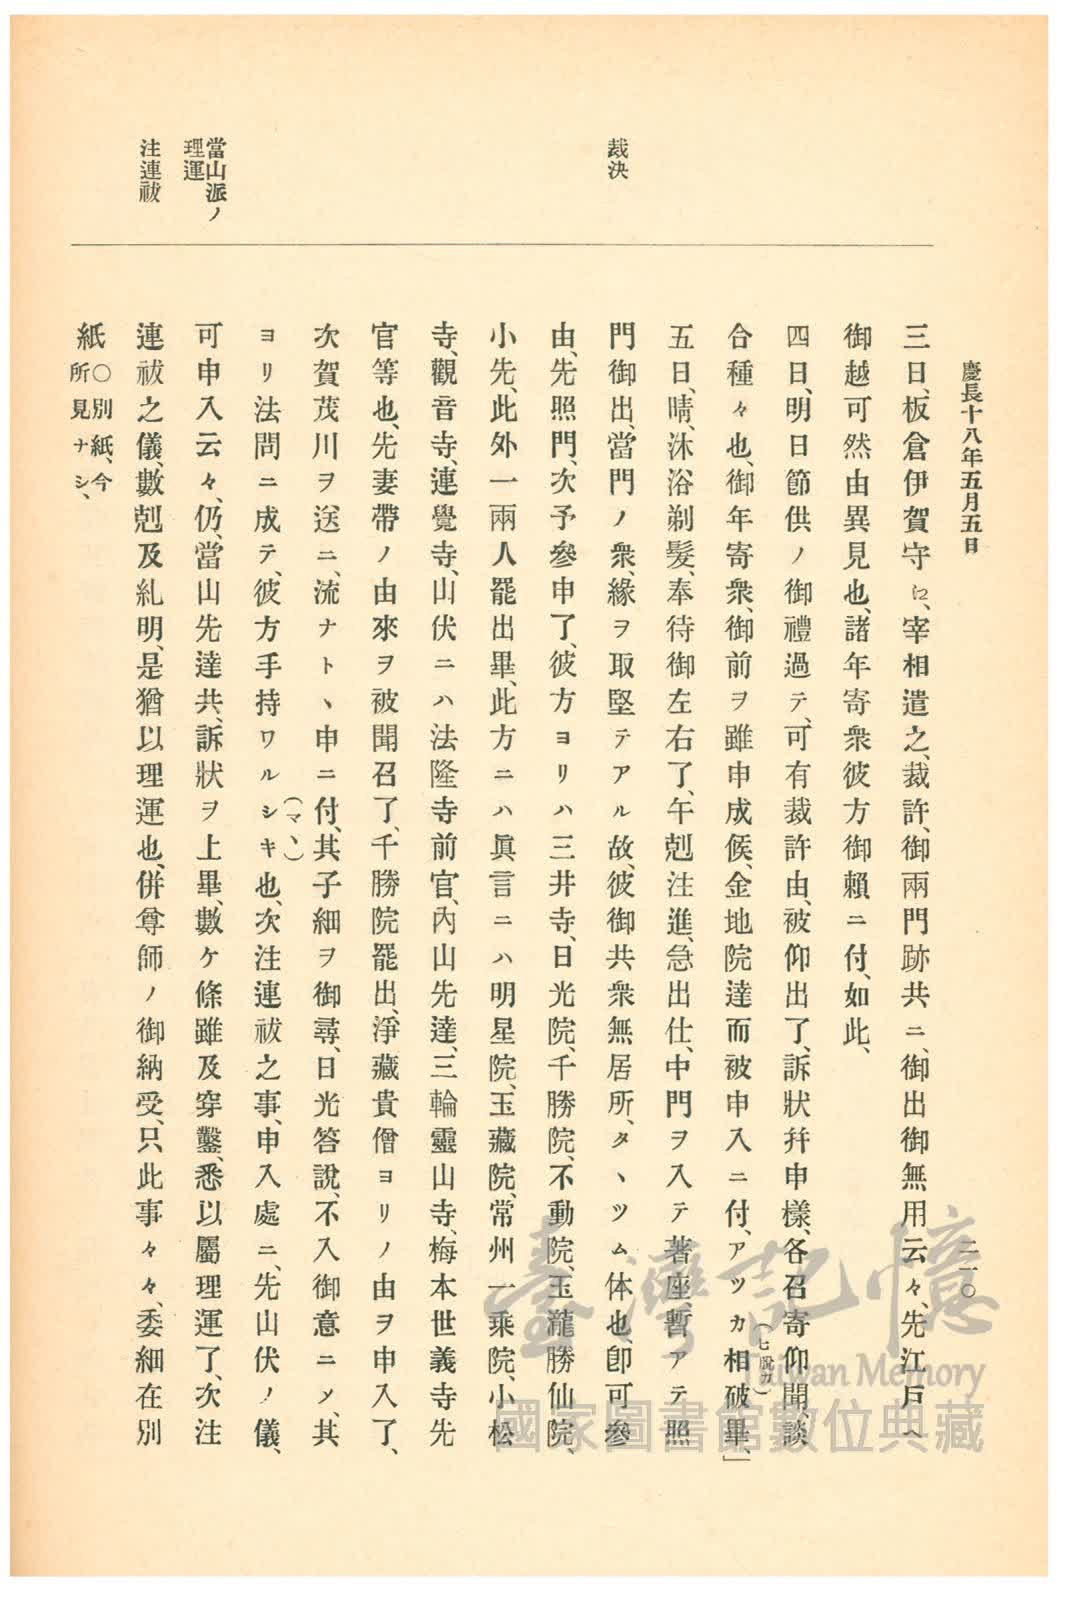 慶長十八年五月五日
二一〇
三日、板倉伊賀守ヒ、宰相遣之、裁許、御兩門跡共ニ、御出御無用云々、先江戸ヘ
御越可然由異見也、諸年寄衆彼方御賴ニ付、如此、
四日、明日節供ノ御禮過テ、可有裁許由、被仰出了、訴狀幷申樣、各召寄仰聞、談
合種々也、御年寄衆、御前ヲ雖申成候、金地院達而被申入ニ付、アツカ(ヒ脫カ)相破畢、」
裁決
五日、晴、沐浴剃髮、奉待御左右了、午剋注進、急出仕、中門ヲ入テ著座、暫アテ照
門御出、當門ノ衆、緣ヲ取堅テアル故、彼御共衆無居所、タヽツム体也、卽可參
由、先照門、次予參申了、彼方ヨリハ三井寺、日光院、千勝院、不動院、玉瀧勝仙院、
小先、此外一兩人罷出畢、此方ニハ眞言ニハ明星院、玉藏院、常州一乘院、小松
寺、觀音寺、連覺寺、山伏ニハ法隆寺前官、內山先達、三輪靈山寺、梅本世義寺先
官等也、先妻帶ノ由來ヲ被聞召了、千勝院罷出、淨藏貴僧ヨリノ由ヲ申入了、
次賀茂川ヲ送ニ、流ナト、申ニ付、(マヽ)其子細ヲ御尋、日光答說、不入御意ニメ、其
ヨリ法問ニ成テ、彼方手持ワルシキ也、次注連祓之事、申入處ニ、先山伏ノ儀、
當山派ノ
理運
可申入云々、仍、當山先達共、訴狀ヲ上畢、數ケ條雖及穿鑿、悉以屬理運了、次注
注連祓
連祓之儀、數剋及糺明、是猶以理運也、併尊師ノ御納受、只此事々々、委細在別
紙〇別紙、今
所見ナシ、
臺灣記憶
Taiwan Memory
國家圖書館數位典藏